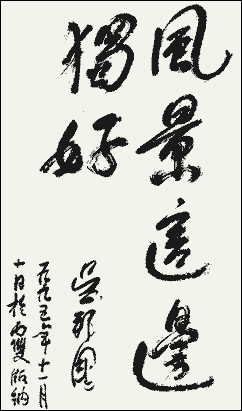 風景這邊
獨好
吴邦国
一九九五年十一月
十日於西雙版納